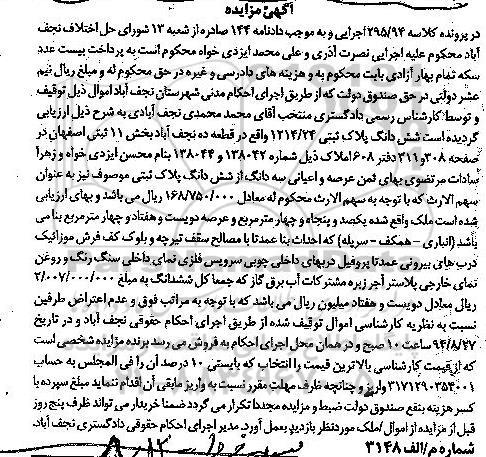 آگهی مزایده
در پرونده کلاسه ۲۹۵/۹۴ اجرایی و به موجب دادنامه ۱۴۴ صادره از شعبه ۱۳ شورای حل اختلاف نجف
آباد محکوم علیه اجرایی نصرت آذری و علی محمد ایزدی خواه محکوم است به پرداخت بیست عدد
سکه تمام بهار آزادی بابت محکوم به و هزینه های دادرسی و غیره در حق محکوم له و مبلغ ریال نیم
عشر دولتی در حق صندوق دولت که از طریق اجرای احکام مدنی شهرستان نجف آباد اموال ذیل توقیف
و توسط کارشناس رسمی دادگستری منتخب آقای محمد محمدی نجف آبادی به شرح ذیل ارزیابی
گردیده است شش دانگ پلاک ثبتی ۱۲۱۴/۲۴ واقع در قطعه ده نجف آباد بخش ۱۱ ثبتی اصفهان در
صفحه ۳۰۸ و ۳۱۱ دفتر ۶۰۸ املاک ذیل شماره ۱۳۸۰۴۲ و ۱۳۸۰۴۴ بنام محسن ایزدی خواه و زهرا
سادات مرتضوی بهای ثمن عرصه و اعیانی سه دانگ از شش دانگ پلاک ثبتی موصوف نیز به عنوان
سهم الارث که با توجه به سهم الارث محکوم له معادل ۱۶۸/۷۵۰/۰۰۰ ریال می باشد و بهای ارزیابی
شده است ملک واقع شده یکصد و پنجاه و چهار مترمربع و عرصه دویست و هفتاد و چهار مترمربع بنا می
باشد (انباری - همکف - سرپله) که احداث بنا عمدتا با مصالح سقف تیرچه و بلوک کف فرش موزائیک
درب های بیرونی عمدتا پروفیل دربهای داخلی چوبی سرویس فلزی نمای داخلی سنگ رنگ و روغن
نمای خارجی پلاستر آجر زبره مشترکات آب برق گاز که جمعا کل ششدانگ به مبلغ ۲/۰۰۷/۰۰۰/۰۰۰
ریال معادل دویست و هفتاد میلیون ریال می باشد که با توجه به مراتب فوق و عدم اعتراض طرفین
نسبت به نظریه کارشناسی اموال توقیف شده از طریق اجرای احکام حقوقی نجف آباد و در تاریخ
۹۴/۸/۴۷ ساعت ۱۰ صبح و در همان محل اجرای احکام به فروش می رسد برنده مزایده شخصی است
که از قیمت کارشناسی بالاترین قیمت را انتخاب که بایستی ۱۰ درصد آن را فی المجلس به حساب
۳۱۷۱۲۹۰۳۵۴۰۰۱ واریز و چنانچه ظرف مهلت مقرر نسبت به واریز مابقی آن اقدام ننماید مبلغ سپرده با
کسر هزینه بنفع صندوق دولت ضبط و مزایده مجددا تکرار می گردد ضمنا خریدار می تواند ظرف پنج روز
قبل از مزایده از اموال /ملک موردنظر بازدید بعمل آورد. مدیر اجرای احکام حقوقی دادگستری نجف آباد.
شماره م/الف ۳۱۴۸